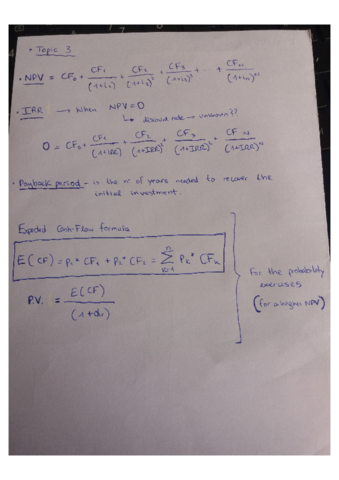 • Topic 3
• NPV = CF₀ + CF₁/(1+i₁) + CF₂/(1+i₂)² + CF₃/(1+i₃)³ + ... + CFₙ/(1+iₙ)ᴺ
• IRR → When NPV=0
↳ discount rate → unknown??
0 = CF₀ + CF₁/(1+IRR) + CF₂/(1+IRR)² + CF₃/(1+IRR)³ + CF N/(1+IRR)ᴺ
• Payback period - is the nº of years needed to recover the
initial investment.
Expected Cash-Flow formula
E(CF) = P₁ * CF₁ + P₂ * CF₂ = ∑ⁿₖ₌₁ Pₖ * CFₖ
P.V. = E(CF)/(1+d)
For the probability
exercises
NPV)